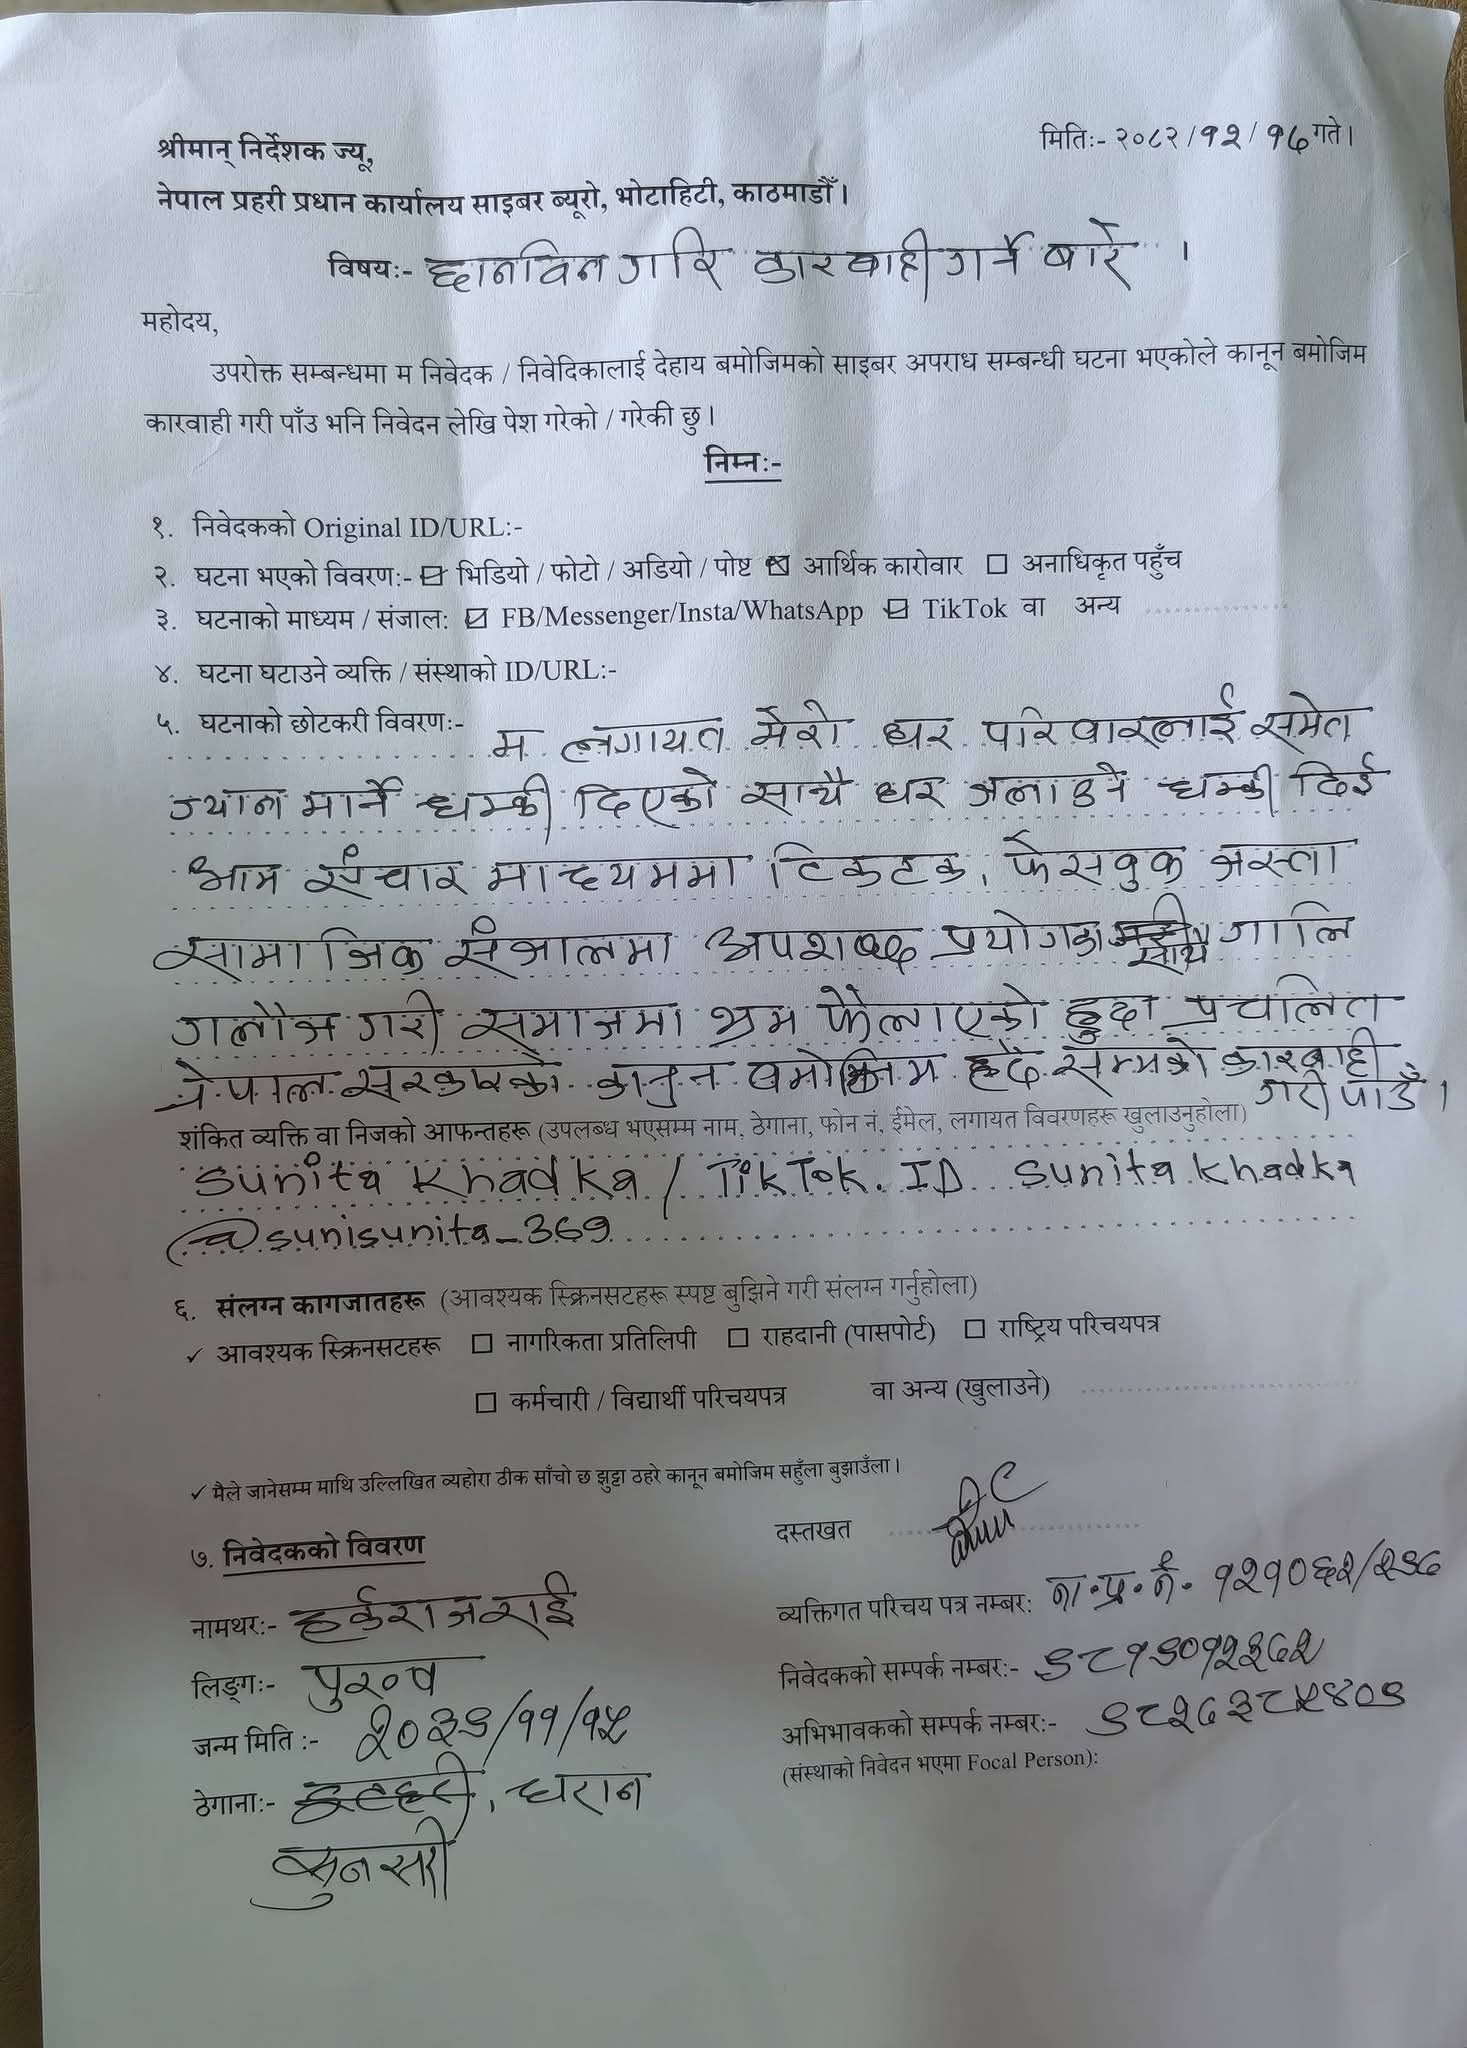 मितिः- २०८२/१२/१६ गते।
श्रीमान् निर्देशक ज्यू,
नेपाल प्रहरी प्रधान कार्यालय साइबर ब्यूरो, भोटाहिटी, काठमाडौँ।
विषयः- छानविन गरि कारवाही गर्ने बारे ।
महोदय,
उपरोक्त सम्बन्धमा म निवेदक / निवेदिकालाई देहाय बमोजिमको साइबर अपराध सम्बन्धी घटना भएकोले कानून बमोजिम
कारवाही गरी पाँउ भनि निवेदन लेखि पेश गरेको / गरेकी छु।
निम्नः-
१. निवेदकको Original ID/URL:-
२. घटना भएको विवरणः- ☑ भिडियो / फोटो / अडियो / पोष्ट ☒ आर्थिक कारोवार ☐ अनाधिकृत पहुँच
३. घटनाको माध्यम / संजालः ☑ FB/Messenger/Insta/WhatsApp ☑ TikTok वा अन्य
४. घटना घटाउने व्यक्ति / संस्थाको ID/URL:-
५. घटनाको छोटकरी विवरणः- म लगायत मेरो घर परिवारलाई समेत
ज्यान मार्ने धम्की दिएको साथै घर जलाउने धम्की दिई
आम संचार माध्यममा टिकटक, फेसवुक जस्ता
सामाजिक संजालमा अपशब्द प्रयोगका साथै गालि
गलौज गरी समाजमा भ्रम फैलाएको हुदा प्रचलित
नेपाल सरकारको कानुन बमोजिम हदै सम्मको कारबाही
गरी पाउँ ।
शंकित व्यक्ति वा निजको आफन्तहरू (उपलब्ध भएसम्म नाम, ठेगाना, फोन नं, ईमेल, लगायत विवरणहरू खुलाउनुहोला)
Sunita Khadka / TikTok. ID Sunita Khadka
@sunisunita_369
६. संलग्न कागजातहरू (आवश्यक स्क्रिनसटहरू स्पष्ट बुझिने गरी संलग्न गर्नुहोला)
✓ आवश्यक स्क्रिनसटहरू ☐ नागरिकता प्रतिलिपी ☐ राहदानी (पासपोर्ट) ☐ राष्ट्रिय परिचयपत्र
☐ कर्मचारी / विद्यार्थी परिचयपत्र वा अन्य (खुलाउने)
✓ मैले जानेसम्म माथि उल्लिखित व्यहोरा ठीक साँचो छ झुट्टा ठहरे कानून बमोजिम सहुँला बुझाउँला।
दस्तखत
७. निवेदकको विवरण
नामथरः- हर्कराज राई
लिङ्गः- पुरुष
जन्म मिति :- २०३९/११/१५
ठेगानाः- इटहरी, धरान
सुनसरी
व्यक्तिगत परिचय पत्र नम्बर: ना.प्र.नं. १२१०६२/२९८
निवेदकको सम्पर्क नम्बरः- ९८१९०१२३८२
अभिभावकको सम्पर्क नम्बरः- ९८२८३८५४०९
(संस्थाको निवेदन भएमा Focal Person):